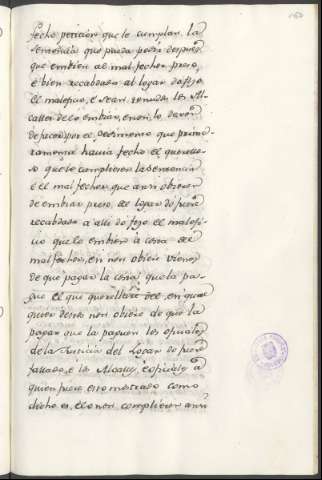 fecho peticion que le cumplan la
sentencia que pueda pedir despues
que embien al mal fechor preso,
e bien recabdado al logar do fizo
el maleficio, e sean tenudos los Al-
calles de lo embiar,
de facer por el pedimento que prime-
ramente havia fecho el querello-
so que le compliesen la sentencia
e el mal fechor que ansi obieren
de embiar preso, del logar do fuere
recabdado a alli do fizo el malefi-
cio que lo embien a costa del
mal fechor, e si non obiere vienes
de que pagar la costa que la pa-
gue el que querellare del, e si qual
quier destos non obiere de que la
pagar que la paguen los oficiales
de la Justicia del Logar do fuere
fallado, e los Alcalles, e oficiales a
quien fuere esto mostrado como
dicho es, e lo non complieren ansi